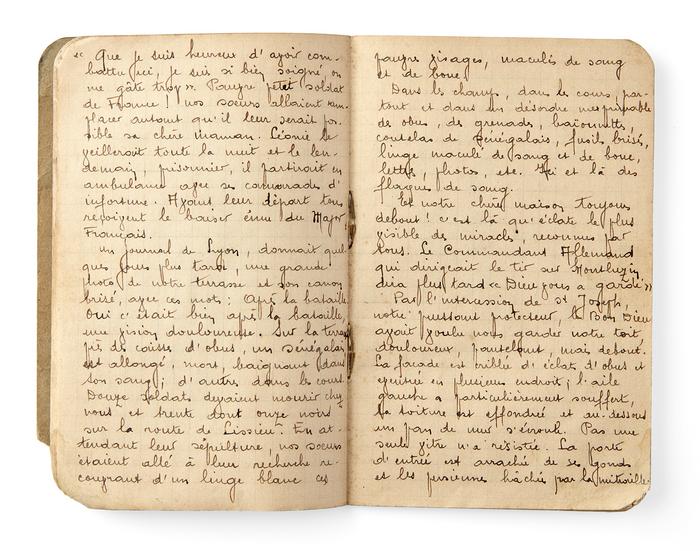 « Que je suis heureux d'avoir com-
battu ici, je suis si bien soigné, on
me gâte trop ». Pauvre petit soldat
de France ! nos sœurs allaient rem-
placer autant qu'il leur serait pos-
sible sa chère maman. Léonie le
veilleroit toute la nuit et le len-
demain, prisonnier, il partiroit en
ambulance avec ses camarades d'
infortune. Avant leur départ tous
reçoivent le baiser ému du Major
Français.
un journal de Lyon, donnait quel-
ques jours plus tard, une grande
photo de notre terrasse et son canon
brisé, avec ces mots : Après la bataille.
Oui c'était bien après la bataille,
une vision douloureuse. Sur la terrasse
près de caisses d'obus, un sénégalais
est allongé, mort, baignant dans
son sang ; d'autres dans les cours.
Douze soldats devaient mourir chez
nous et trente dont onze noirs
sur la route de Lissieu. En at-
tendant leur sépulture, nos sœurs
étaient allé à leur recherche re-
couvrant d'un linge blanc ces
pauvres visages, maculés de sang
et de boue.
Dans les champs, dans les cours, par-
tout et dans un désordre inexprimable
des obus, des grenades, baïonnettes,
coutelas de Sénégalais, fusils brisés,
linge maculé de sang et de boue,
lettres, photos, etc. Ici et là des
flaques de sang.
Et notre chère maison toujours
debout ! c'est là qu'éclate le plus
visible des miracles, reconnus par
tous. Le Commandant Allemand
qui dirigeait le tir sur Montluzin
dira plus tard « Dieu vous a gardé »
Par l'intercession de St Joseph,
notre puissant protecteur, le Bon Dieu
avait voulu nous garder notre toit,
douloureux, pantelant, mais debout.
La façade est criblée d'éclats d'obus et
éventrée en plusieurs endroits ; l'aile
gauche a particulièrement souffert,
la toiture est effondrée et au-dessous
un pan de mur s'écroule. Pas une
seule vitre n'a résistée. La porte
d'entrée est arrachée de ses gonds
et les persiennes hâchées par la mitraille.